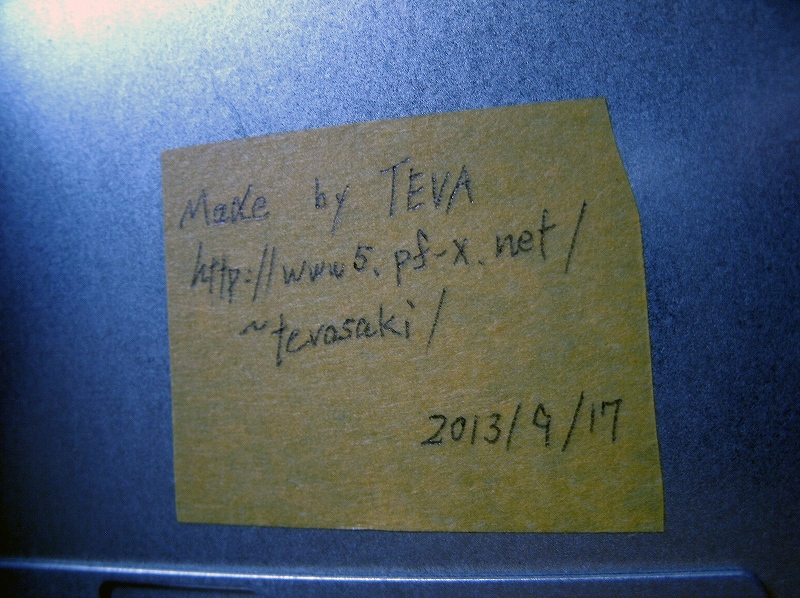 Make by TEVA
http://www5.pf-x.net/
~tevasaki/
2013/9/17